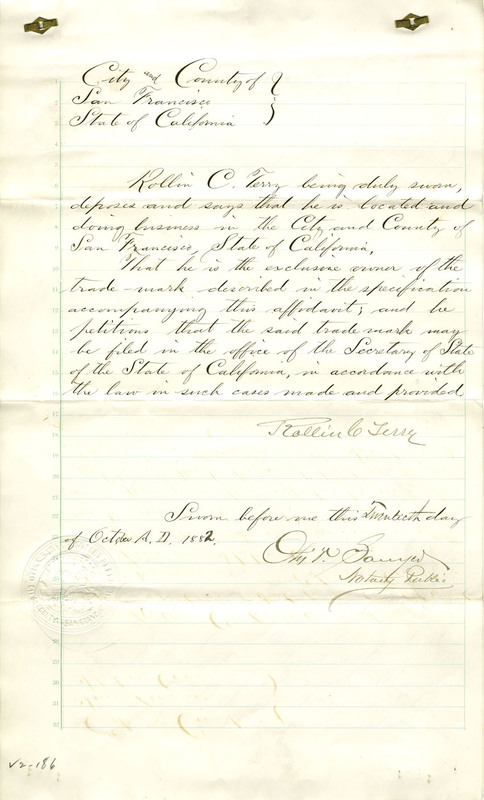 City and County of
San Francisco
State of California
Rollin C. Terry being duly sworn,
deposes and says that he is located and
doing business in the City and County of
San Francisco, State of California,
That he is the exclusive owner of the
trade mark described in the specification
accompanying this affidavit; and he
petitions that the said trade mark may
be filed in the office of the Secretary of State
of the State of California, in accordance with
the law in such cases made and provided
Rollin C Terry
Sworn before me this Twentieth day
of October A.D. 1882.
Notary Public
V2-186